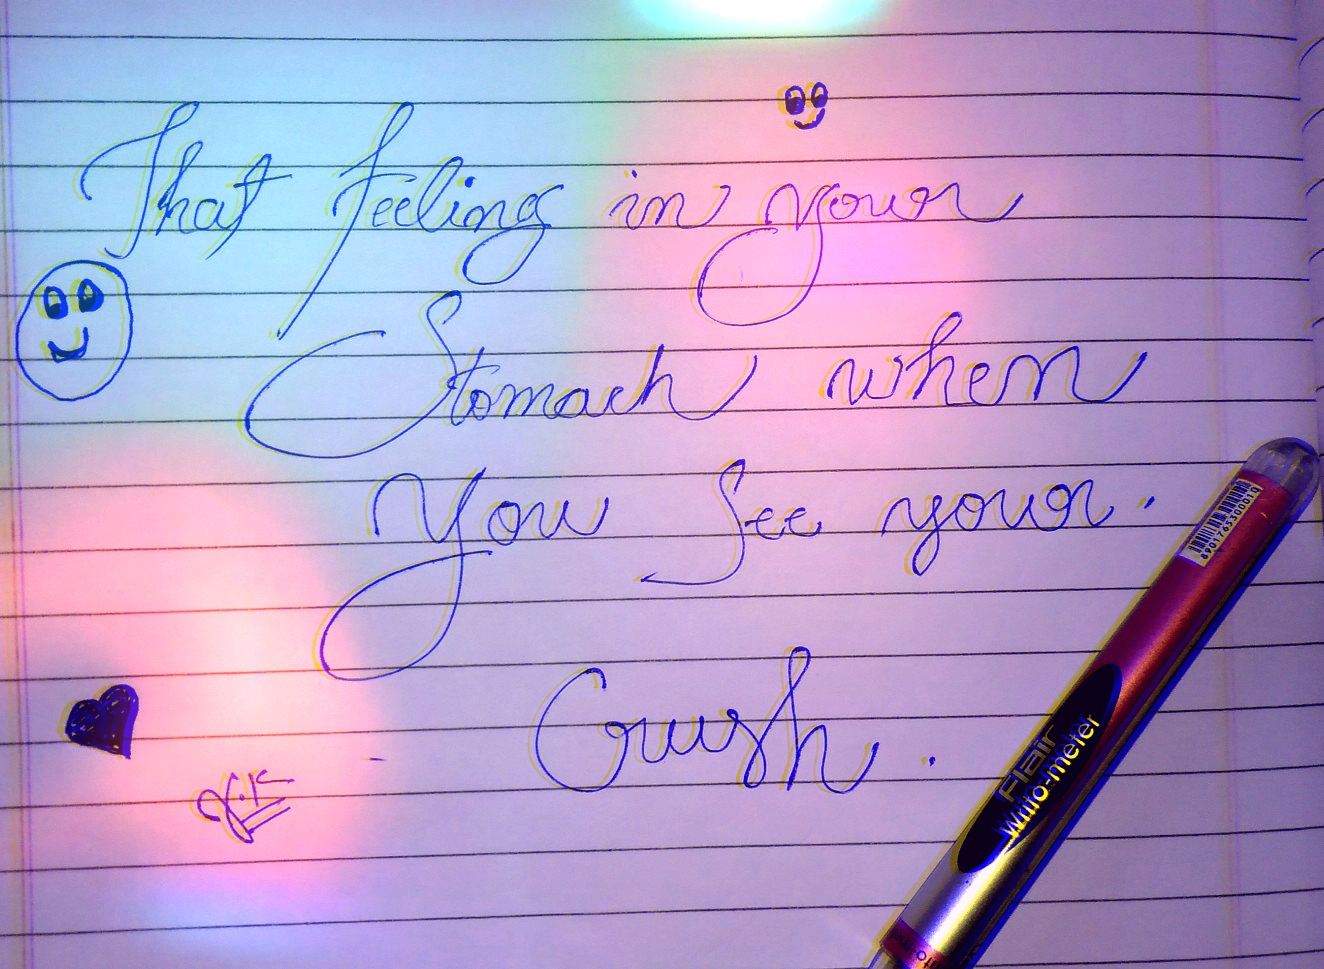 That feeling in your
Stomach when
You See your.
Crush.
8901765300010
Flair
Writo-meter